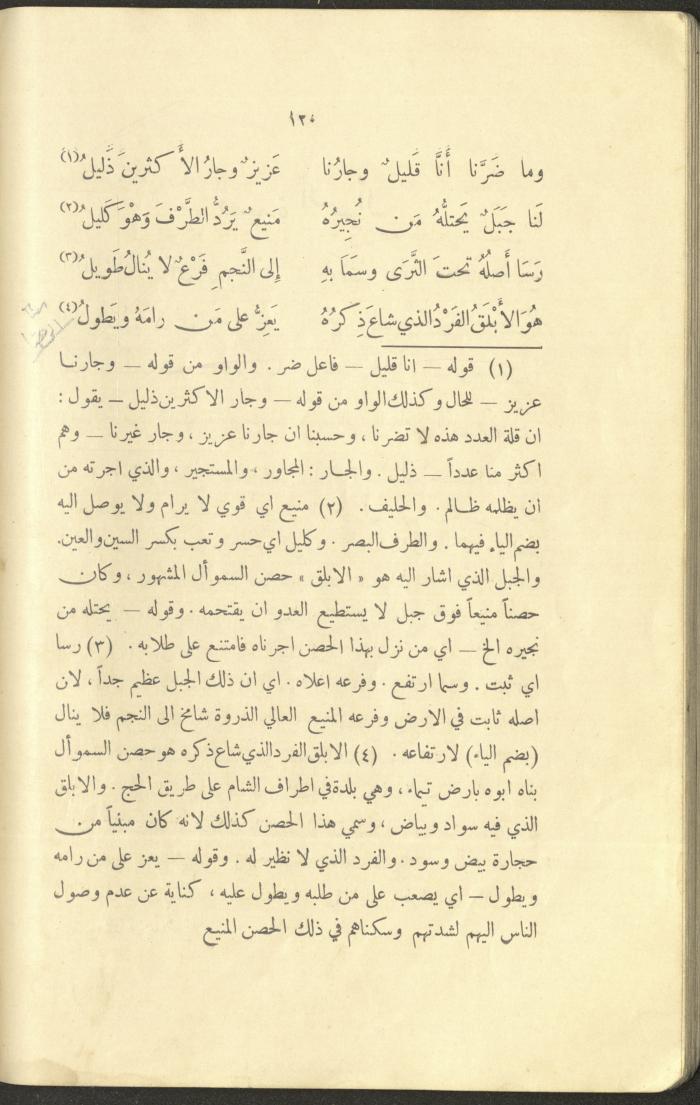 ١٢٠
وما ضَرَّنا أَنَّا قَليلٌ وجارُنا عَزيزٌ وجارُ الأَكثرينَ ذَليلُ(١)
لَنا جَبَلٌ يَحتلُّهُ مَن نُجِيرُهُ مَنيعٌ يَرُدُّ الطَّرْفَ وَهْوَ كَليلُ(٢)
رَسَا أَصلُهُ تحتَ الثَّرَى وسمَا بهِ إِلى النَّجمِ فَرْعٌ لا يُنالُ طَويلُ(٣)
هُوَ الأَبْلَقُ الفَرْدُ الذي شاعَ ذِكرُهُ يَعِزُّ على مَن رامَهُ ويَطولُ(٤)
(١) قوله — انا قليل — فاعل ضر . والواو من قوله — وجارنا
عزيز — للحال وكذلك الواو من قوله — وجار الاكثرين ذليل — يقول :
ان قلة العدد هذه لا تضرنا ، وحسبنا ان جارنا عزيز ، وجار غيرنا — وهم
اكثر منا عدداً — ذليل . والجار : المجاور ، والمستجير ، والذي اجرته من
ان يظلمه ظالم . والحليف . (٢) منيع اي قوي لا يرام ولا يوصل اليه
بضم الياء فيهما . والطرف البصر . وكليل اي حسر وتعب بكسر السين والعين.
والجبل الذي اشار اليه هو « الابلق » حصن السموأل المشهور ، وكان
حصناً منيعاً فوق جبل لا يستطيع العدو ان يقتحمه . وقوله — يحتله من
نجيره الخ — اي من نزل بهذا الحصن اجرناه فامتنع على طلابه . (٣) رسا
اي ثبت . وسما ارتفع . وفرعه اعلاه . اي ان ذلك الجبل عظيم جداً ، لان
اصله ثابت في الارض وفرعه المنيع العالي الذروة شامخ الى النجم فلا ينال
(بضم الياء) لارتفاعه . (٤) الابلق الفرد الذي شاع ذكره هو حصن السموأل
بناه ابوه بارض تيماء ، وهي بلدة في اطراف الشام على طريق الحج . والابلق
الذي فيه سواد وبياض ، وسمي هذا الحصن كذلك لانه كان مبنياً من
حجارة بيض وسود . والفرد الذي لا نظير له . وقوله — يعز على من رامه
ويطول — اي يصعب على من طلبه ويطول عليه ، كناية عن عدم وصول
الناس اليهم لشدتهم وسكناهم في ذلك الحصن المنيع